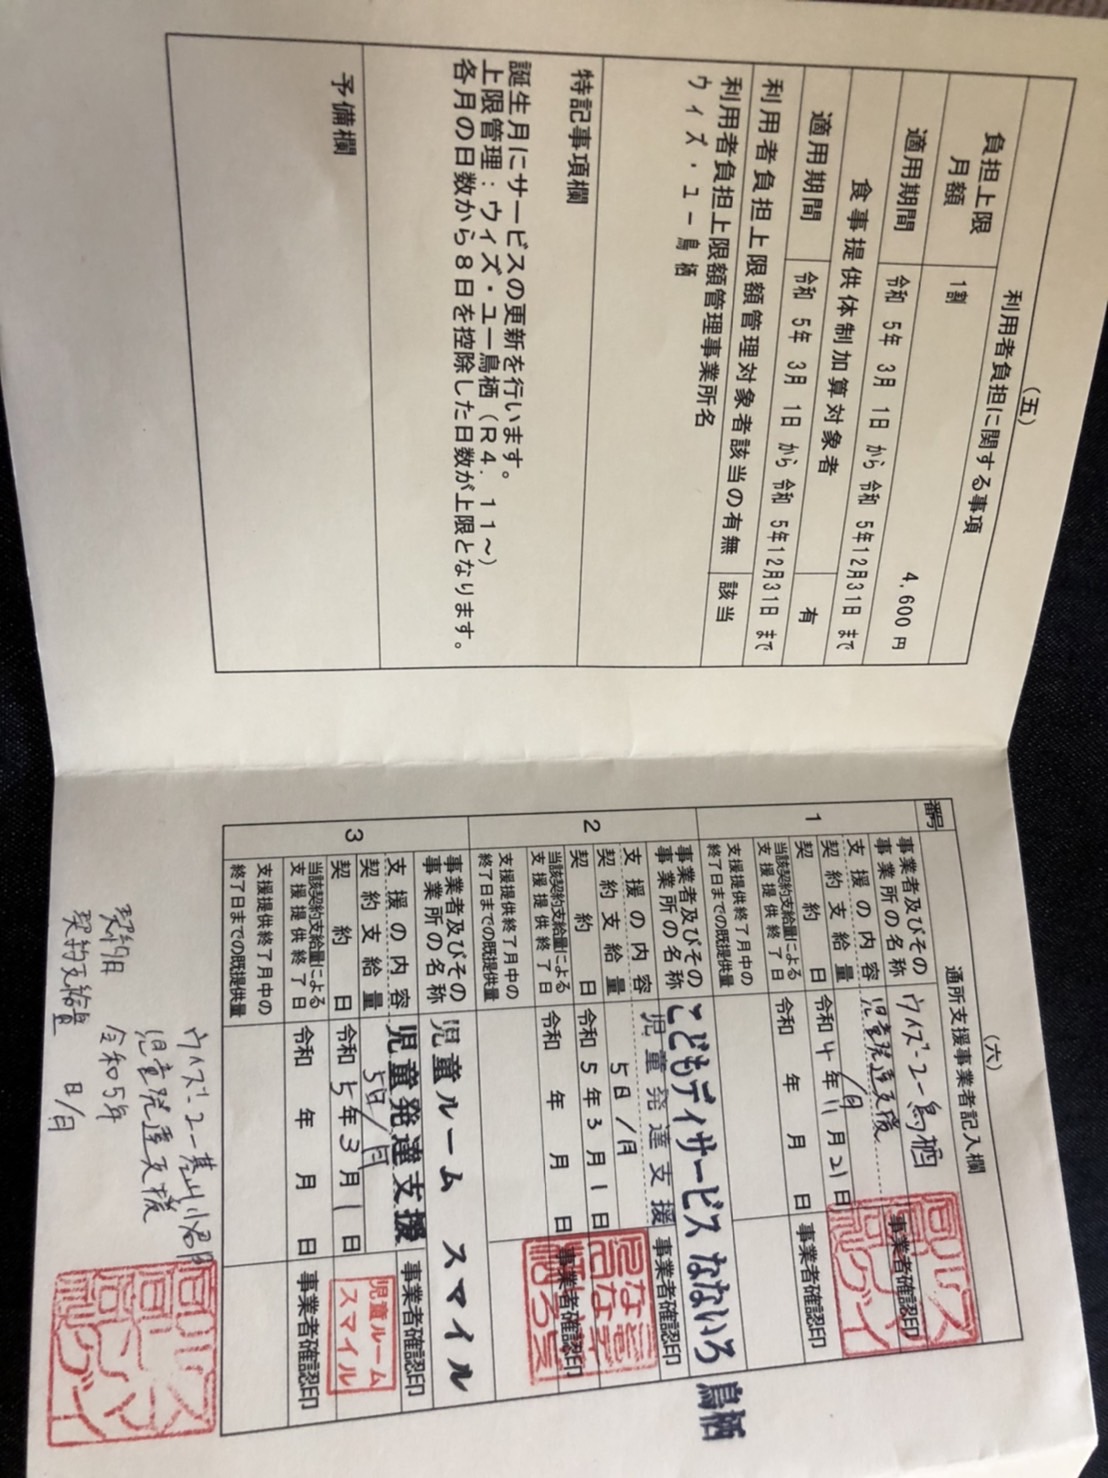 (五)
利用者負担に関する事項
負担上限月額 1割 4,600 円
適用期間 令和 5年 3月 1日 から 令和 5年12月31日 まで
食事提供体制加算対象者 有
適用期間 令和 5年 3月 1日 から 令和 5年12月31日 まで
利用者負担上限額管理対象者該当の有無 該当
利用者負担上限額管理事業所名
ウィズ・ユー鳥栖
特記事項欄
誕生月にサービスの更新を行います。
上限管理:ウィズ・ユー鳥栖(R4.11~)
各月の日数から8日を控除した日数が上限となります。
予備欄
(六)
通所支援事業者記入欄
番号
1
事業者及びその事業所の名称 ウィズ・ユー鳥栖
支援の内容 児童発達支援
契約支給量 /月
契約日 令和4年11月21日
事業者確認印
当該契約支給量による支援提供終了日 令和 年 月 日
事業者確認印
支援提供終了月中の終了日までの既提供量
2
事業者及びその事業所の名称 こどもデイサービス なないろ 鳥栖
支援の内容 児童発達支援
契約支給量 5日/月
契約日 令和5年3月1日
事業者確認印
当該契約支給量による支援提供終了日 令和 年 月 日
事業者確認印
支援提供終了月中の終了日までの既提供量
3
事業者及びその事業所の名称 児童ルーム スマイル
支援の内容 児童発達支援
契約支給量 5日/月
契約日 令和5年3月1日
事業者確認印
児童ルーム
スマイル
当該契約支給量による支援提供終了日 令和 年 月 日
事業者確認印
支援提供終了月中の終了日までの既提供量
ウィズ・ユー基山
児童発達支援
契約日 令和5年
契約支給量 日/月